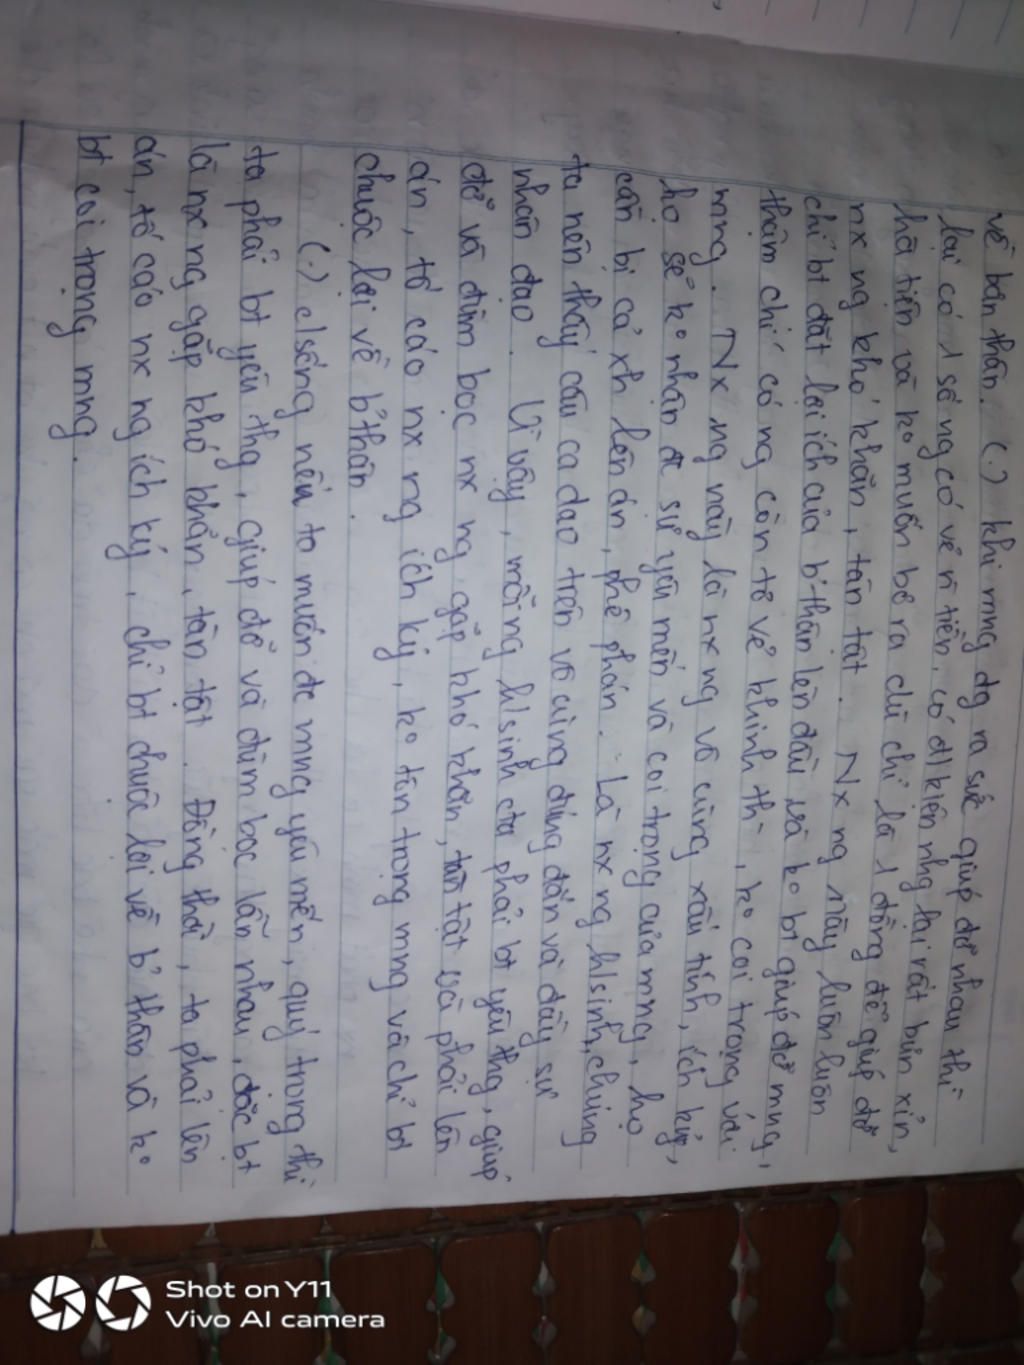 về bản thân. (.) khi mng dg ra sức giúp đỡ nhau thì
lại có 1 số ng có vẻ n` tiền, có đ/kiện nhg lại rất bủn xỉn,
hà tiện và ko muốn bỏ ra dù chỉ là 1 đồng để giúp đỡ
nx ng khó khăn, tàn tật. Nx ng này luôn luôn
chỉ bt đặt lợi ích của b' thân lên đầu và ko bt giúp đỡ mng,
thậm chí có ng còn tỏ vẻ khinh th`, ko coi trọng với
mng. Nx ng này là nx ng vô cùng xấu tính, ích kỷ,
họ sẽ ko nhận đc sự yêu mến và coi trọng của mng, họ
cần bị cả xh lên án, phê phán. Là nx ng h/sinh, chúng
ta nên thấy câu ca dao trên vô cùng đúng đắn và đầy sự
nhân đạo. Vì vậy, mỗi ng h/sinh cta phải bt yêu thg, giúp
đỡ và đùm bọc nx ng gặp khó khăn, tàn tật và phải lên
án, tố cáo nx ng ích kỷ, ko tôn trọng mng và chỉ bt
chuộc lợi về b' thân.
(.) c/sống nếu ta muốn đc mng yêu mến, quý trọng thì
ta phải bt yêu thg, giúp đỡ và đùm bọc lẫn nhau, đặc bt
là nx ng gặp khó khăn, tàn tật. Đồng thời, ta phải lên
án, tố cáo nx ng ích kỷ, chỉ bt chuộc lợi về b' thân và ko
bt coi trọng mng.
Shot on Y11
Vivo AI camera